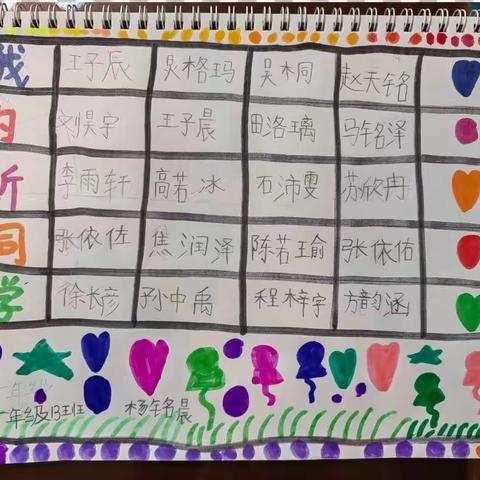 我 王子辰 吴格玛 吴桐 赵天铭
的 刘昊宇 王子晨 田洛璃 马铭泽
新 李雨轩 高若冰 石沛雯 苏欣冉
同 张依佐 焦润泽 陈若瑜 张依佑
学 徐长彦 孙中禹 程梓宇 方韵涵
一年级13班 杨铭晨